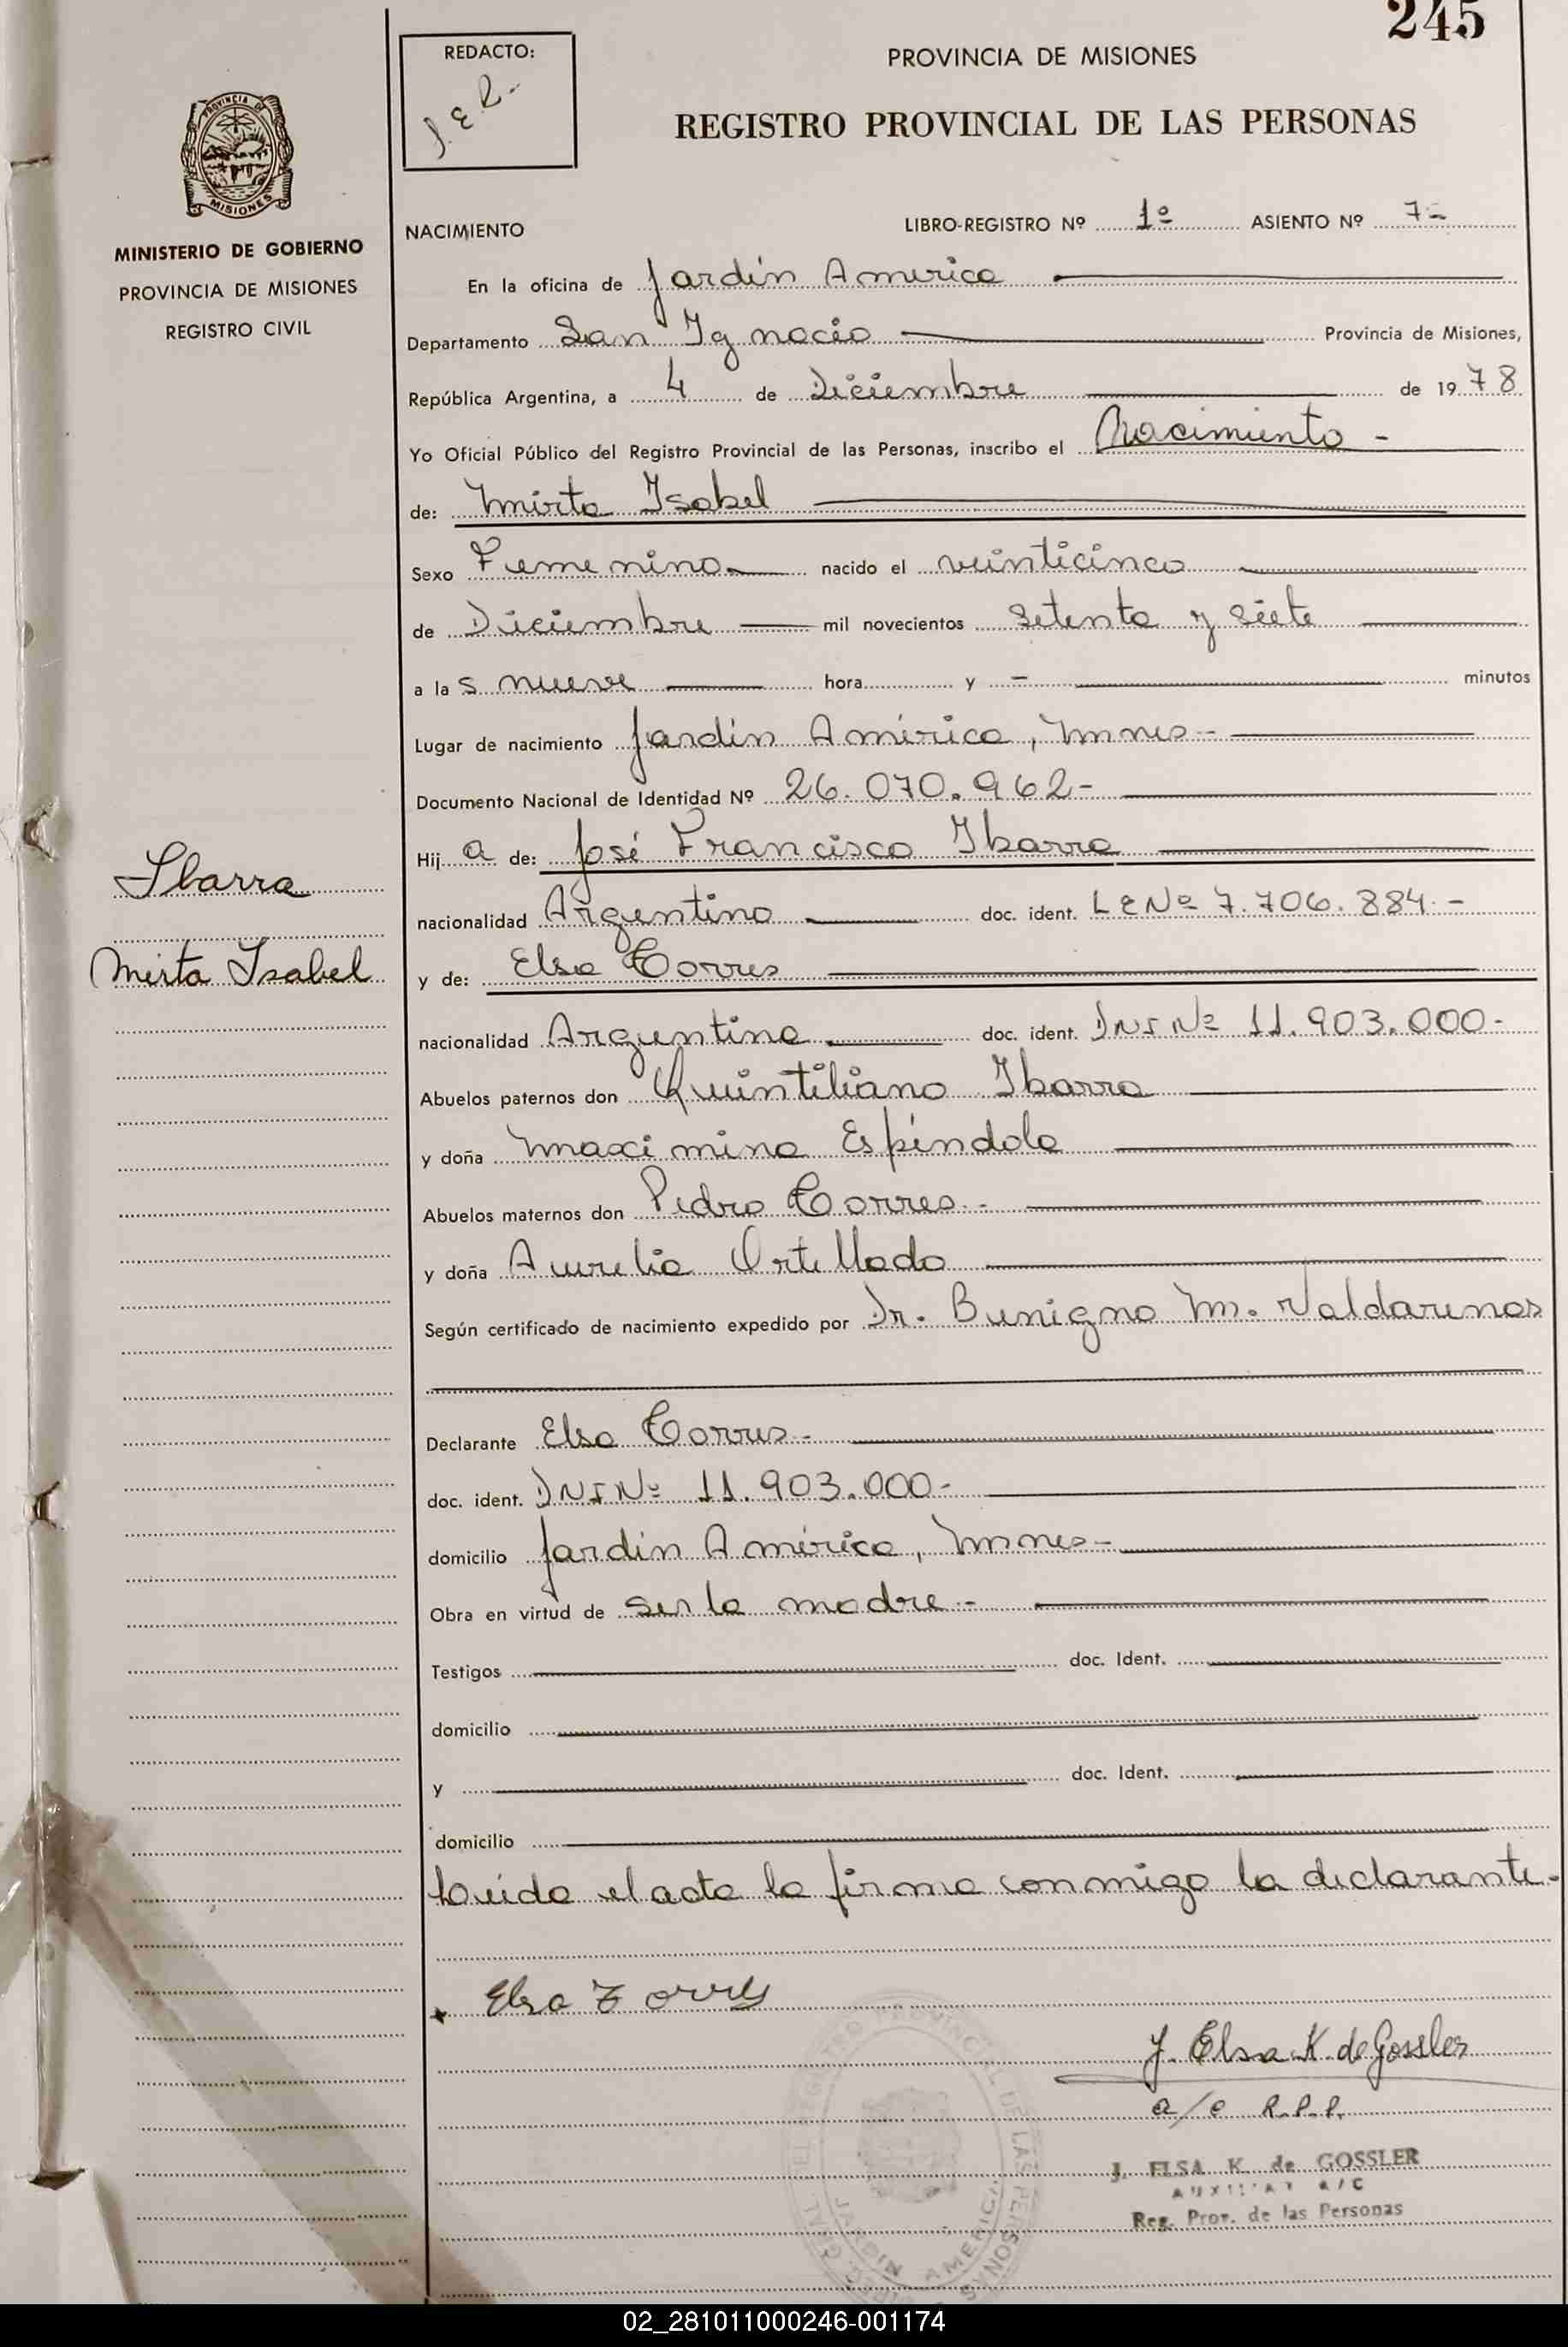 245
REDACTO:
J.E.R.-
PROVINCIA DE MISIONES
REGISTRO PROVINCIAL DE LAS PERSONAS
PROVINCIA DE
MISIONES
MINISTERIO DE GOBIERNO
PROVINCIA DE MISIONES
REGISTRO CIVIL
NACIMIENTO
LIBRO-REGISTRO Nº 1º ASIENTO Nº 7-
En la oficina de Jardín America
Departamento San Ignacio Provincia de Misiones,
República Argentina, a 4 de Diciembre de 1978
Yo Oficial Público del Registro Provincial de las Personas, inscribo el Nacimiento -
de: Mirta Isabel
Sexo Femenino nacido el veinticinco
de Diciembre mil novecientos setenta y siete
a las nueve hora y - minutos
Lugar de nacimiento Jardín América, Mnes-
Documento Nacional de Identidad Nº 26.070.962-
Hija de: José Francisco Ibarra
Ibarra
nacionalidad Argentino doc. ident. LE Nº 7.706.884.-
Mirta Isabel
y de: Elsa Torres
nacionalidad Argentina doc. ident. DNI Nº 11.903.000-
Abuelos paternos don Quintiliano Ibarra
y doña Maximina Espíndola
Abuelos maternos don Pedro Torres.-
y doña Aurelia Ortellado
Según certificado de nacimiento expedido por Dr. Benigno M. Valdarenas
Declarante Elsa Torres-
doc. ident. DNI Nº 11.903.000-
domicilio Jardín América, Mnes-
Obra en virtud de ser la madre.-
Testigos doc. Ident.
domicilio
y doc. Ident.
domicilio
Leída el acta la firma conmigo la declarante-
Elsa Torres
J. Elsa K. de Gossler
a/c R.P.P.
J. ELSA K. de GOSSLER
AUXILIAR A/C
Reg. Prov. de las Personas
REGISTRO PROVINCIAL DE LAS PERSONAS
JARDIN AMERICA
02_281011000246-001174